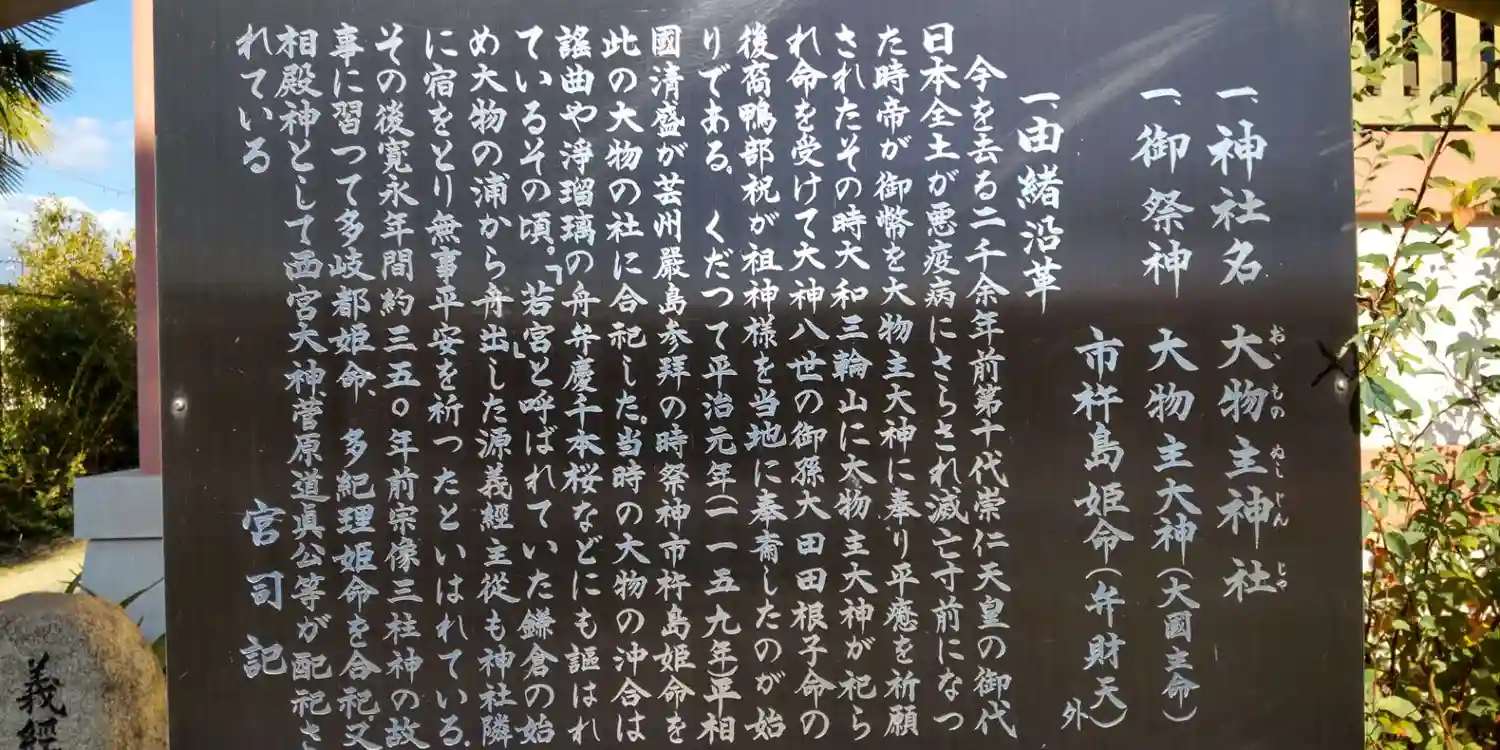 一、神社名 大物主神社
おゝものぬしじんじゃ
一、御祭神 大物主大神(大國主命)
市杵島姫命(弁財天)外
一、由緒沿革
今を去る二千余年前第十代崇仁天皇の御代
日本全土が悪疫病にさらされ滅亡寸前になつ
た時帝が御幣を大物主大神に奉り平癒を祈願
されたその時大和三輪山に大物主大神が祀ら
れ命を受けて大神八世の御孫大田田根子命の
後裔鴨部祝が祖神様を当地に奉斎したのが始
りである。くだつて平治元年(一一五九年)平相
國清盛が芸州厳島参拜の時祭神市杵島姫命を
此の大物の社に合祀した。当時の大物の沖合は
謡曲や淨瑠璃の舟弁慶千本桜などにも謳はれ
ているその頃。「若宮」と呼ばれていた鎌倉の始
め大物の浦から舟出した源義經主從も神社隣
に宿をとり無事平安を祈つたといはれている。
その後寛永年間約三五〇年前宗像三柱神の故
事に習つて多岐都姫命、多紀理姫命を合祀又
相殿神として西宮大神、菅原道真公等が配祀さ
れている
宮司記
義經